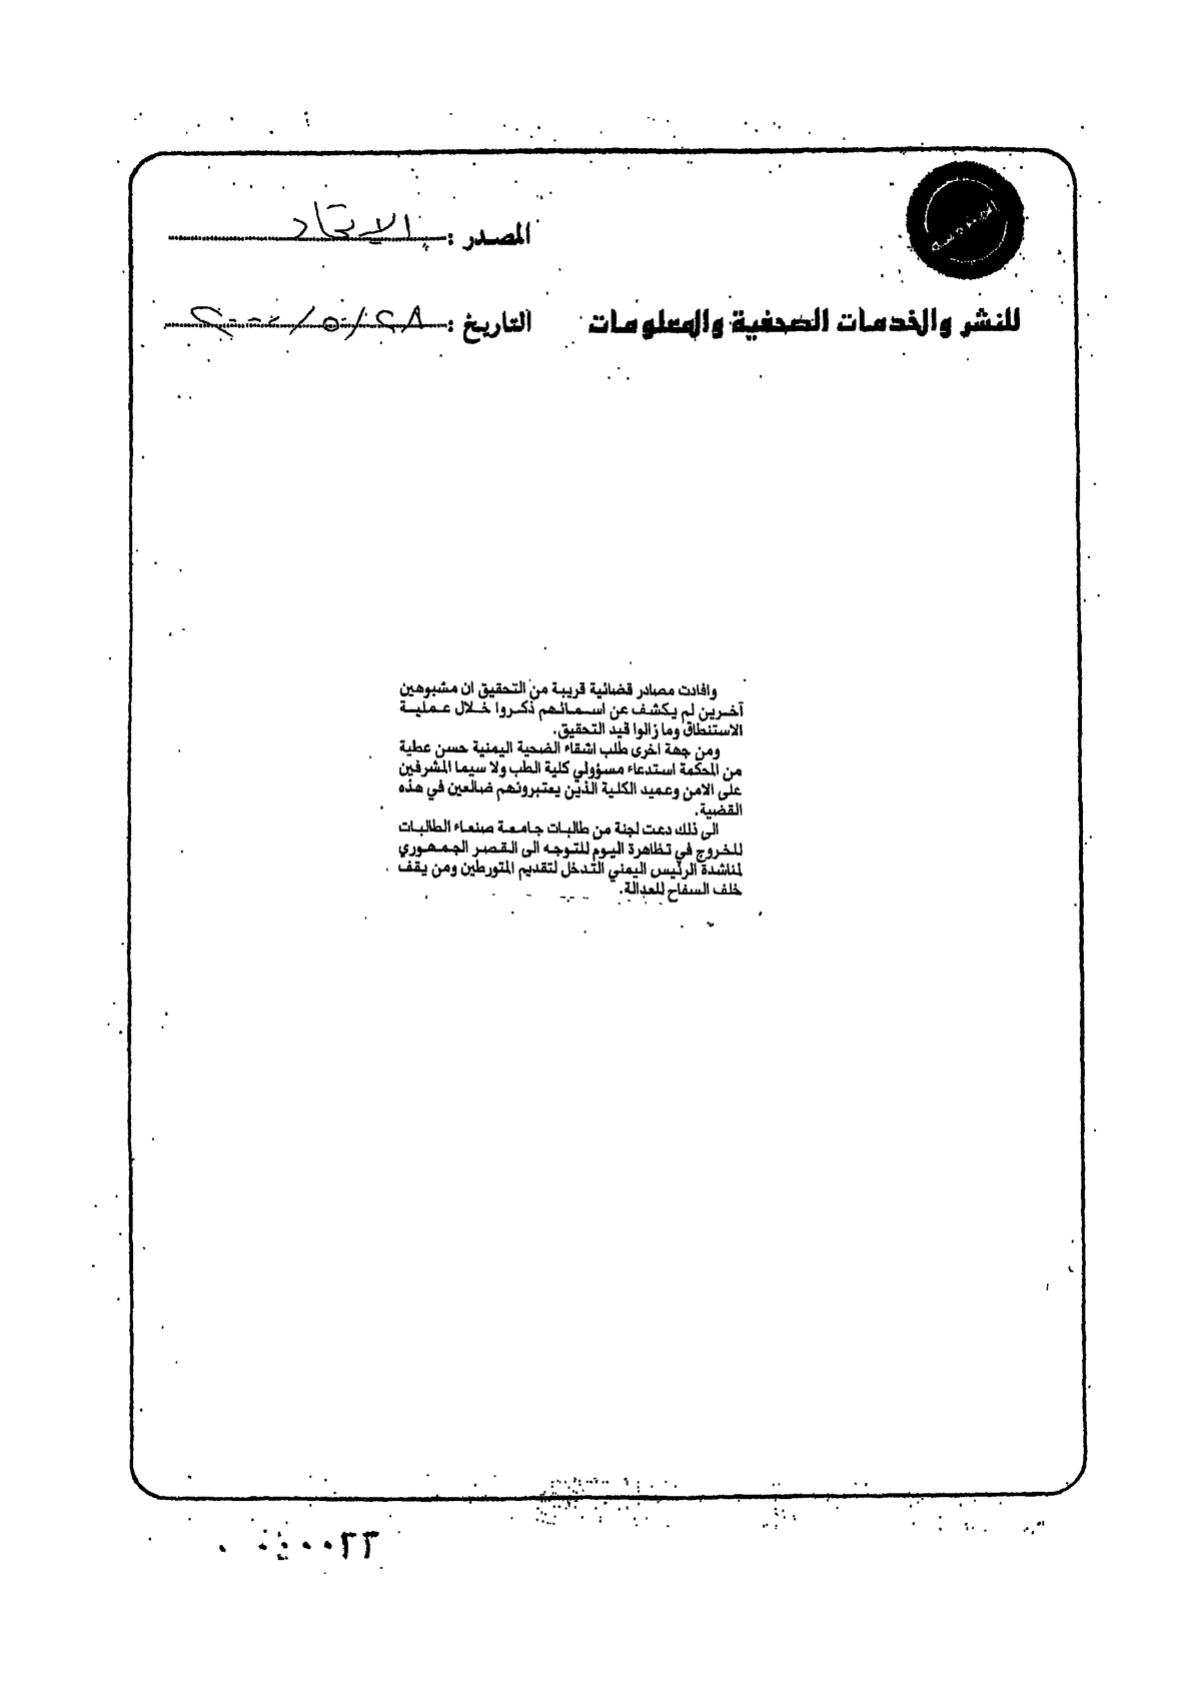 المصدر : الاتحاد
للنشر والخدمات الصحفية والمعلومات
التاريخ : ٢٨/٥/٢٠٠٠
وافادت مصادر قضائية قريبة من التحقيق ان مشبوهين
آخرين لم يكشف عن اسمائهم ذكروا خلال عملية
الاستنطاق وما زالوا قيد التحقيق.
ومن جهة اخرى طلب اشقاء الضحية اليمنية حسن عطية
من المحكمة استدعاء مسؤولي كلية الطب ولا سيما المشرفين
على الامن وعميد الكلية الذين يعتبرونهم ضالعين في هذه
القضية.
الى ذلك دعت لجنة من طالبات جامعة صنعاء الطالبات
للخروج في تظاهرة اليوم للتوجه الى القصر الجمهوري
لمناشدة الرئيس اليمني التدخل لتقديم المتورطين ومن يقف
خلف السفاح للعدالة.